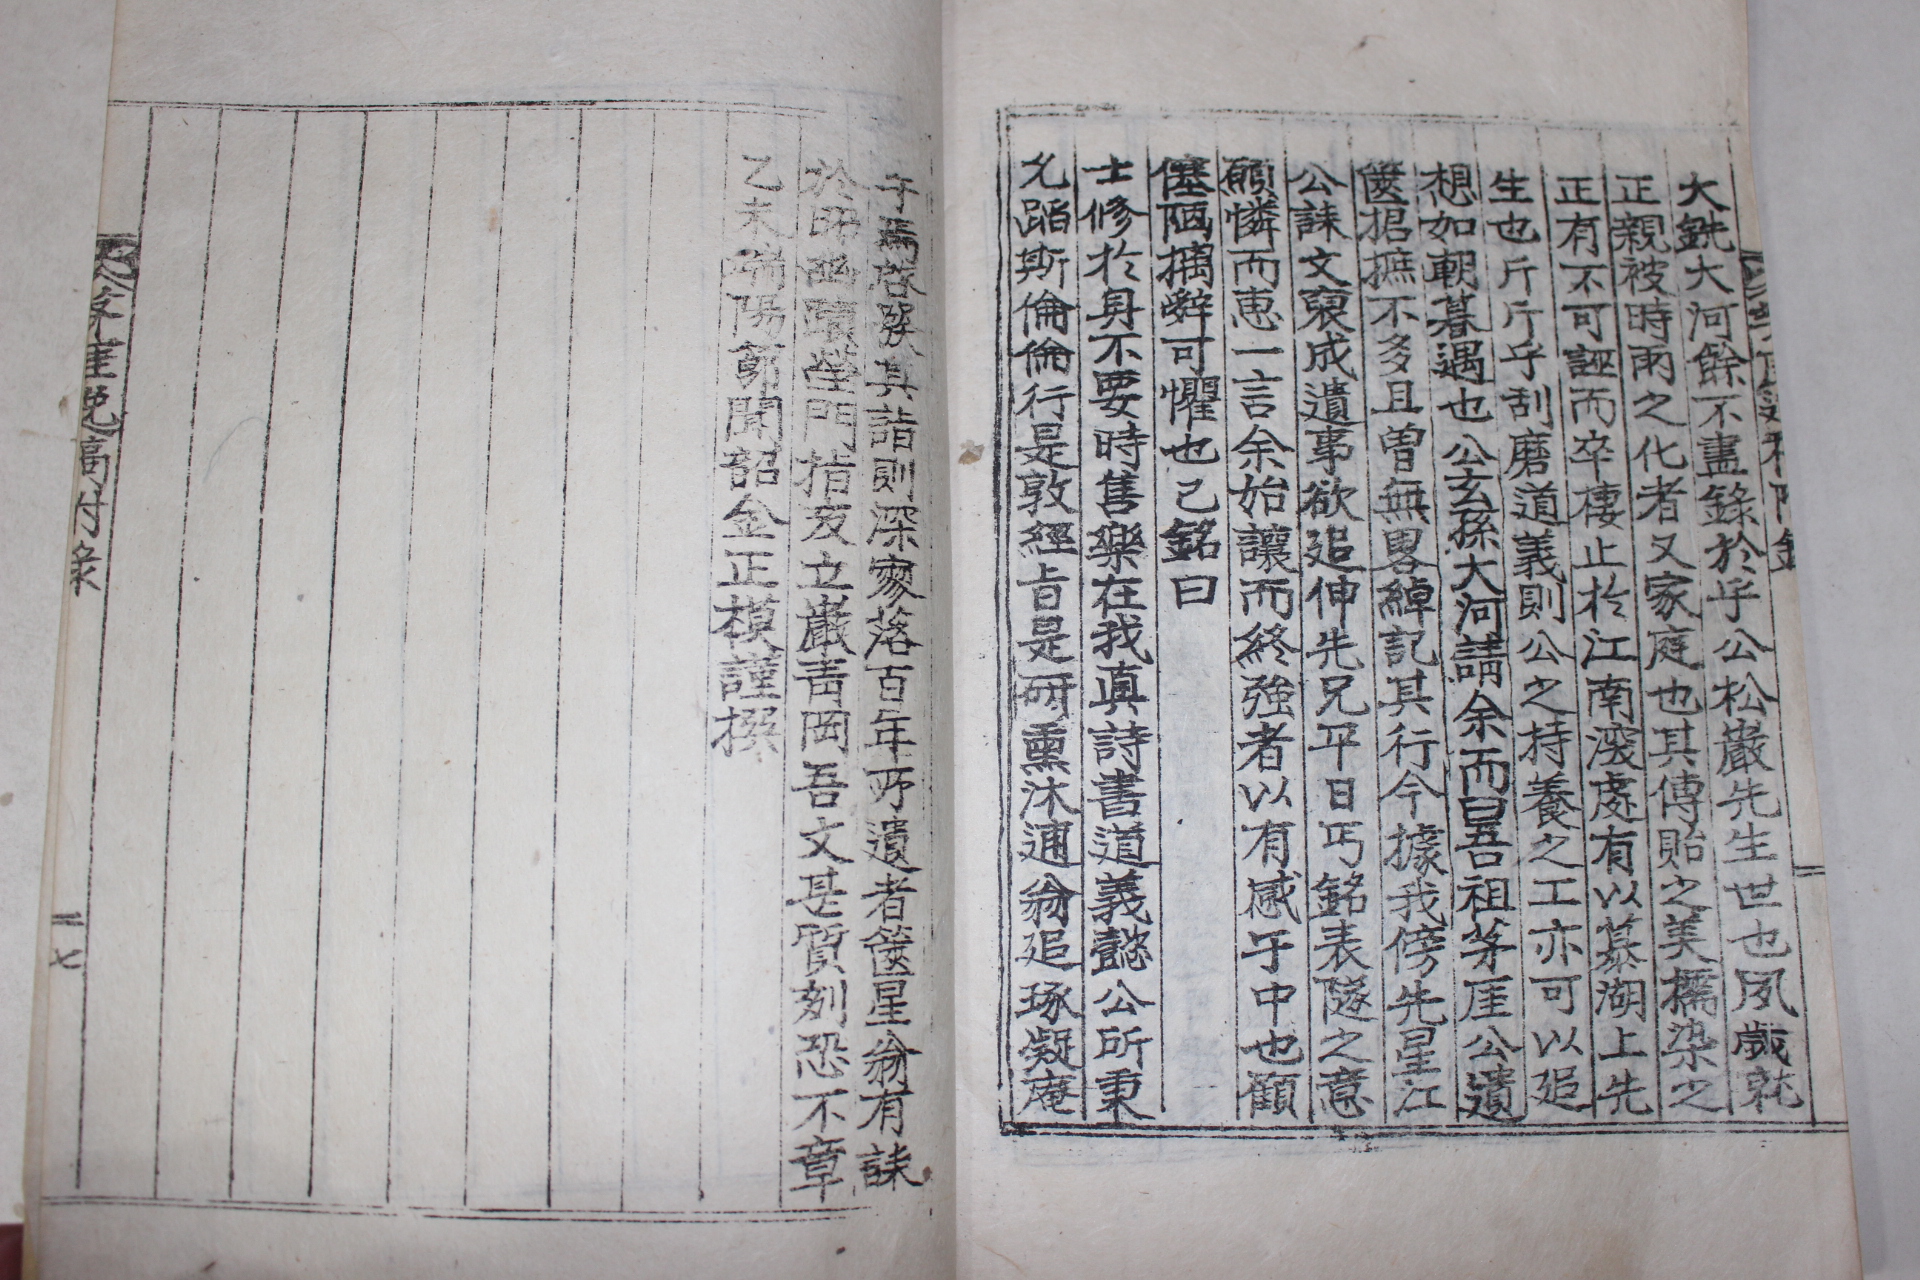 大銑大河餘不盡錄於乎公松巖先生世也夙歲就
正親被時雨之化者又家庭也其傳貽之美擩染之
正有不可誣而卒棲止於江南溪處有以慕湖上先
生也斤斤乎刮磨道義則公之持養之工亦可以追
想如朝暮遇也公玄孫大河請余而曰吾祖芧厓公遺
篋捃摭不多且曾無畧綽記其行今據我傍先星江
公誄文裒成遺事欲追伸先兄平日丐銘表隧之意
願憐而惠一言余始讓而終強者以有感于中也顧
僿陋摛辭可懼也已銘曰
士修於身不要時售樂在我眞詩書道義懿公所秉
允蹈斯倫倫行是敦經旨是硏熏沐適翁追琢凝庵
于焉啓發其詣則深寥落百年所遺者篋星翁有誄
於昭幽蹟瑩門指友立巖靑岡吾文甚質刻恐不章
乙未端陽節聞韶金正模謹撰
芧厓逸稿附錄
一七